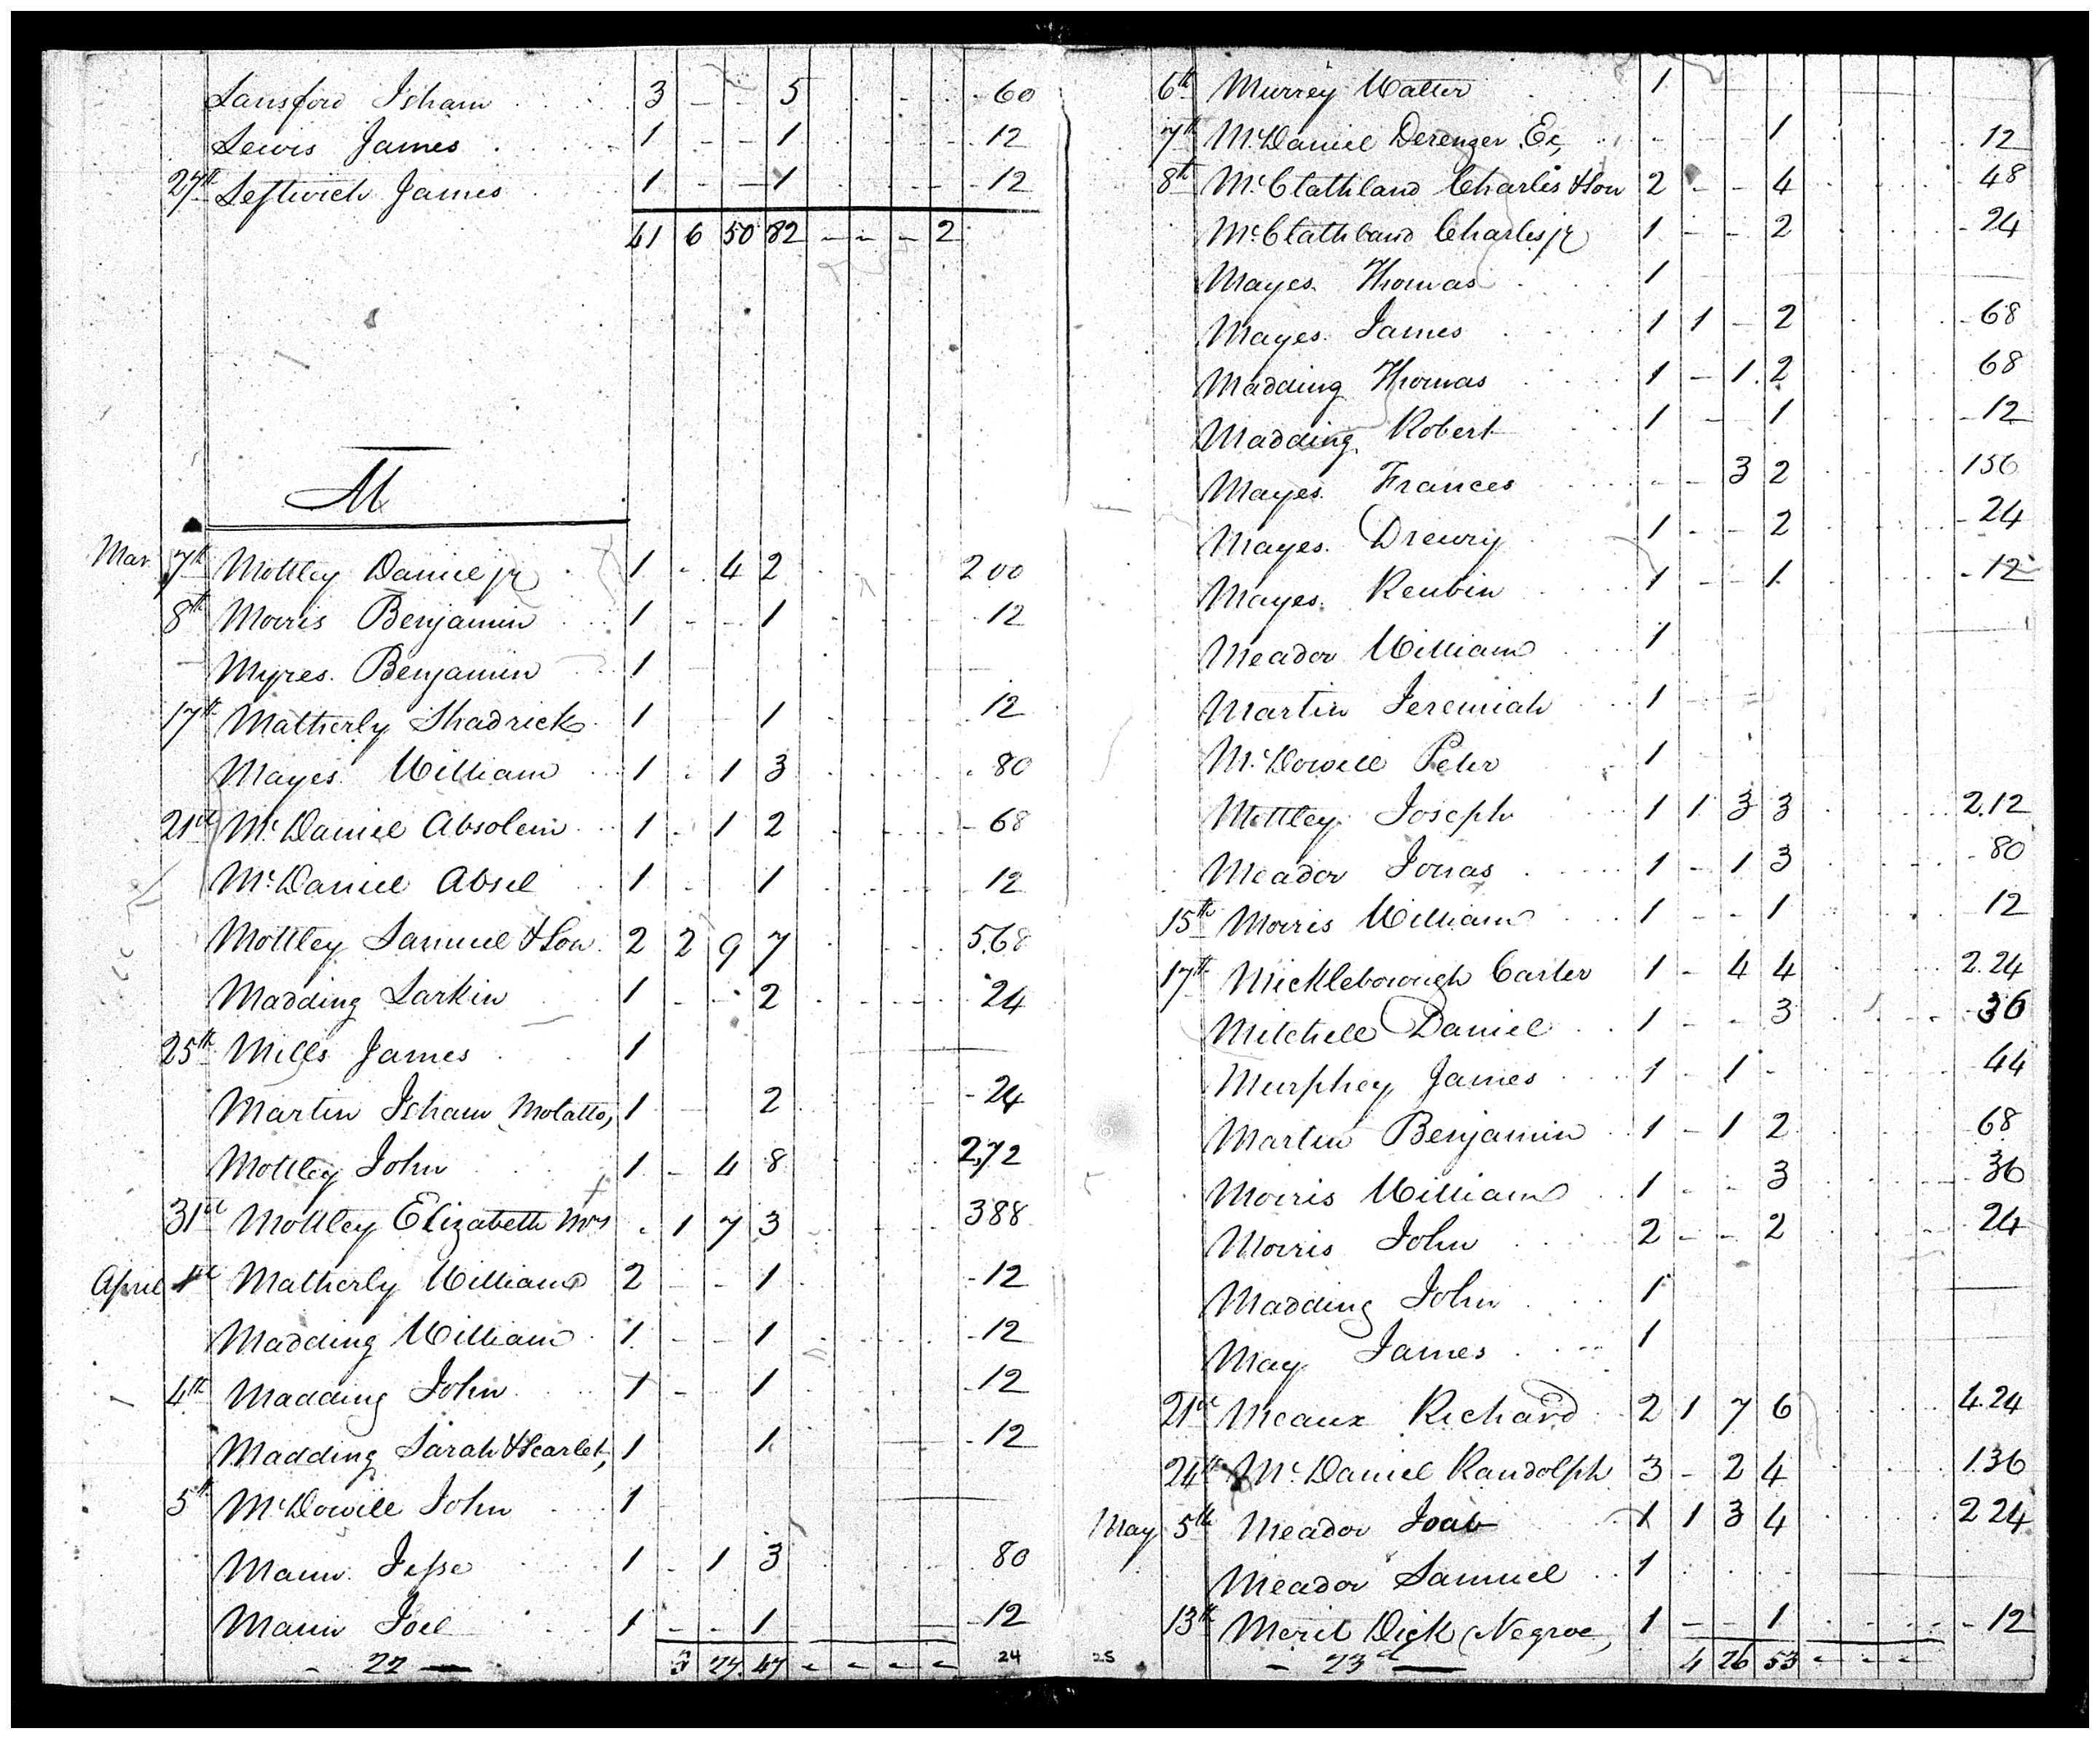 Lansford Isham 3 - - 5 - - 60
Lewis James 1 - - 1 - - - - 12
27th Leftwich James 1 - - 1 - - - - 12
41 6 50 82 - - - 2
M
Mar 7th Mottley Daniel jr 1 - 4 2 200
8th Morris Benjamin 1 - - 1 12
Myres Benjamin 1
17th Matherly Shadrick 1 1 12
Mayes William 1 - 1 3 80
21st McDaniel Absolem 1 - 1 2 68
McDaniel Absel 1 - 1 12
Mottley Samuel & Son 2 2 9 7 5.68
Madding Larkin 1 - - 2 24
25th Mills James 1
Martin Isham Molatto, 1 - 2 24
Mottley John 1 - 4 8 2,72
31st Mottley Elizabeth Mrs - 1 7 3 388
April 1st Matherly William 2 - - 1 12
Madding William 1 - - 1 12
4th Madding John 1 - 1 12
Madding Sarah & Scarlet, 1 1 12
5th McDowell John 1
Mann Jesse 1 - 1 3 80
Mann Joel 1 - - 1 12
- 22 - 3 27 47 - - - - 24
6th Murrey Walter 1
7th McDaniel Derenzer Ex, - - - 1 12
8th McClathland Charles & Son 2 - - 4 48
McClathland Charles jr 1 - - 2 24
Mayes Thomas 1
Mayes James 1 1 - 2 68
Madding Thomas 1 - 1 2 68
Madding Robert 1 - 1 12
Mayes Frances - - 3 2 156
Mayes Drewry 1 - - 2 24
Mayes Reubin 1 - - 1 12
Meador William 1
Martin Jeremiah 1
McDowell Peter 1
Mottley Joseph 1 1 3 3 2.12
Meador Jonas 1 - 1 3 80
15th Morris William 1 - - 1 12
17th Mickleborough Carter 1 - 4 4 2.24
Mitchell Daniel 1 - - 3 36
Murphey James 1 - 1 - 44
Martin Benjamin 1 - 1 2 68
Morris William 1 - - 3 36
Morris John 2 - - 2 24
Madding John 1
May James 1
21st Meaux Richard 2 1 7 6 4.24
24th McDaniel Randolph 3 - 2 4 1.36
May 5th Meador Joab 1 1 3 4 2 24
Meador Samuel 1
13th Merit Dick (Negroe, 1 - - 1 12
25 - 23 - 4 26 53 - - -